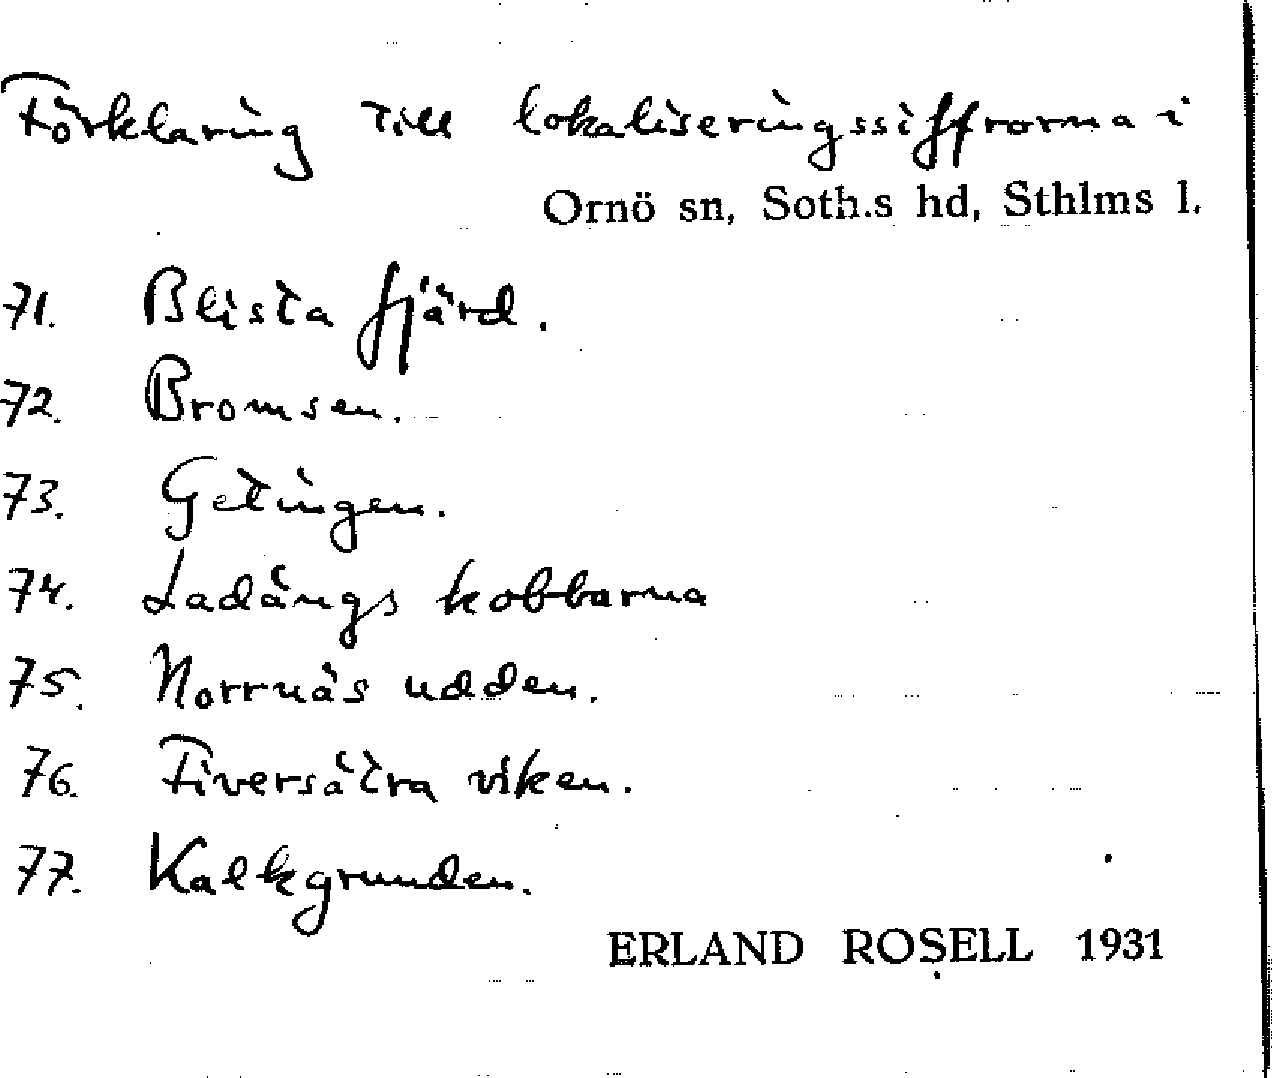 Förklaring till lokaliseringssiffrorna i
Ornö sn, Soth.s hd, Sthlms l.
71. Blista fjärd.
72. Bromsen.
73. Getingen.
74. Ladängs kobbarna
75. Norrnäs udden.
76. Fiversätra viken.
77. Kalkgrunden.
ERLAND ROSELL 1931